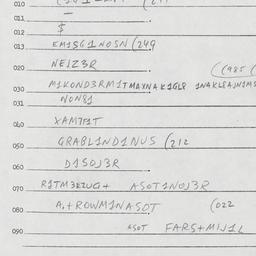 010
011 —
012 $
013 EM1SG1NOSN (249
020 NE1Z3R ((985 (
030 M1KOND3RM1TMAYNAK1GL8
031 NON81
040 XAM7F1T
050 GRABL1ND1NUS (212
060 D1SOJ3R
070 ASOT1NOJ3R
080 A,+ROWM1NASOT (022
090 ASOT FARS+MIJ1L